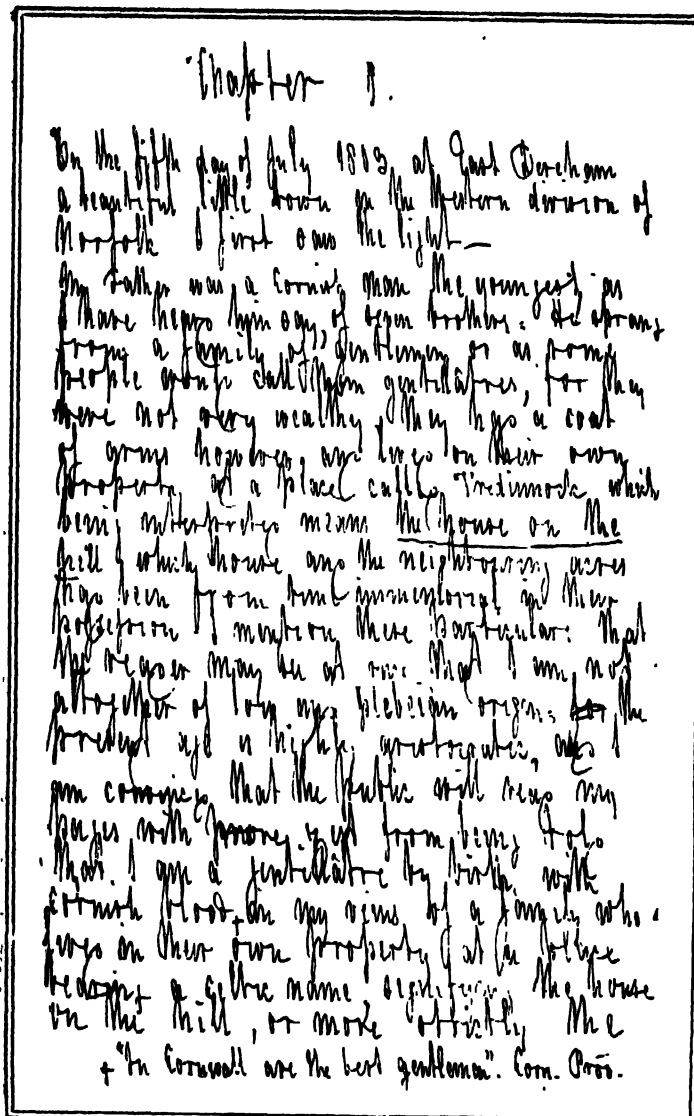 Chapter I.
On the fifth day of July 1803, at East Dereham
a beautiful little town in the Western division of
Norfolk I first saw the light —
My father was a Cornish man the youngest, as
I have heard him say, of seven brothers. He sprang
from a family of gentlemen, or as some
people would call them gentillâtres, for they
were not very wealthy, they had a coat
of arms however, and lived on their own
property at a place called Tredinnock which
being interpreted means the house on the
hill, which house and the neighbouring acres
had been from time immemorial in their
possession. I mention these particulars that
the reader may see at once that I am not
altogether of low and plebeian origin, for the
present age is highly aristocratic, and I
am convinced that the public will read my
pages with more zest from being told
that I am a gentillâtre by birth with
Cornish blood + in my veins, of a family who
lived on their own property at a place
bearing a Celtic name signifying the house
on the hill, or more strictly the
+ "In Cornwall are the best gentlemen". Corn. Prov.